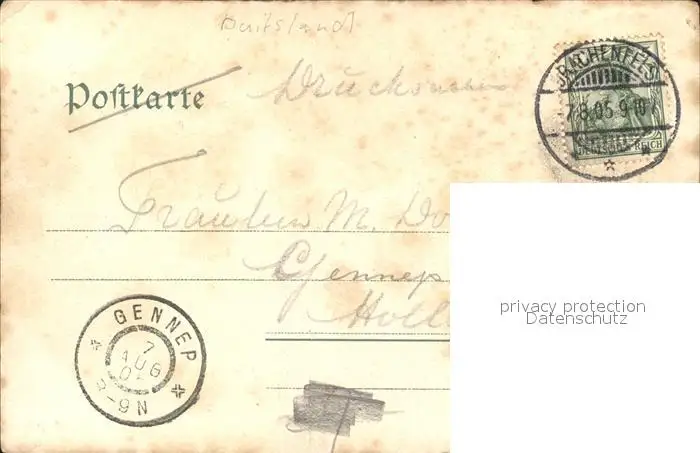 Duitsland
Postkarte
Drucksache
DRACHENFELS
7.8.05.9-10V
DEUTSCHES REICH
Fräulein M. Do
Gennep
Holl
privacy protection
Datenschutz
GENNEP
7
AUG
8-9N